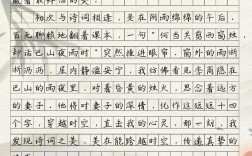 初次与诗词相逢，是在阴雨绵绵的午后，
百无聊赖地翻着课本，一句“何当共剪西窗烛，
却话巴山夜雨时”突然撞进眼帘，窗外的雨淅
淅沥沥，屋内静谧安宁，我仿佛看见李商隐在
巴山的雨夜里，对着昏黄的烛火，思念着远方
的妻子，他将对妻子的深情，化作这短短十四
个字，穿越时空，直击我的心灵，那一刻，我
发现诗词之美，美在能跨越时空，传递真挚的